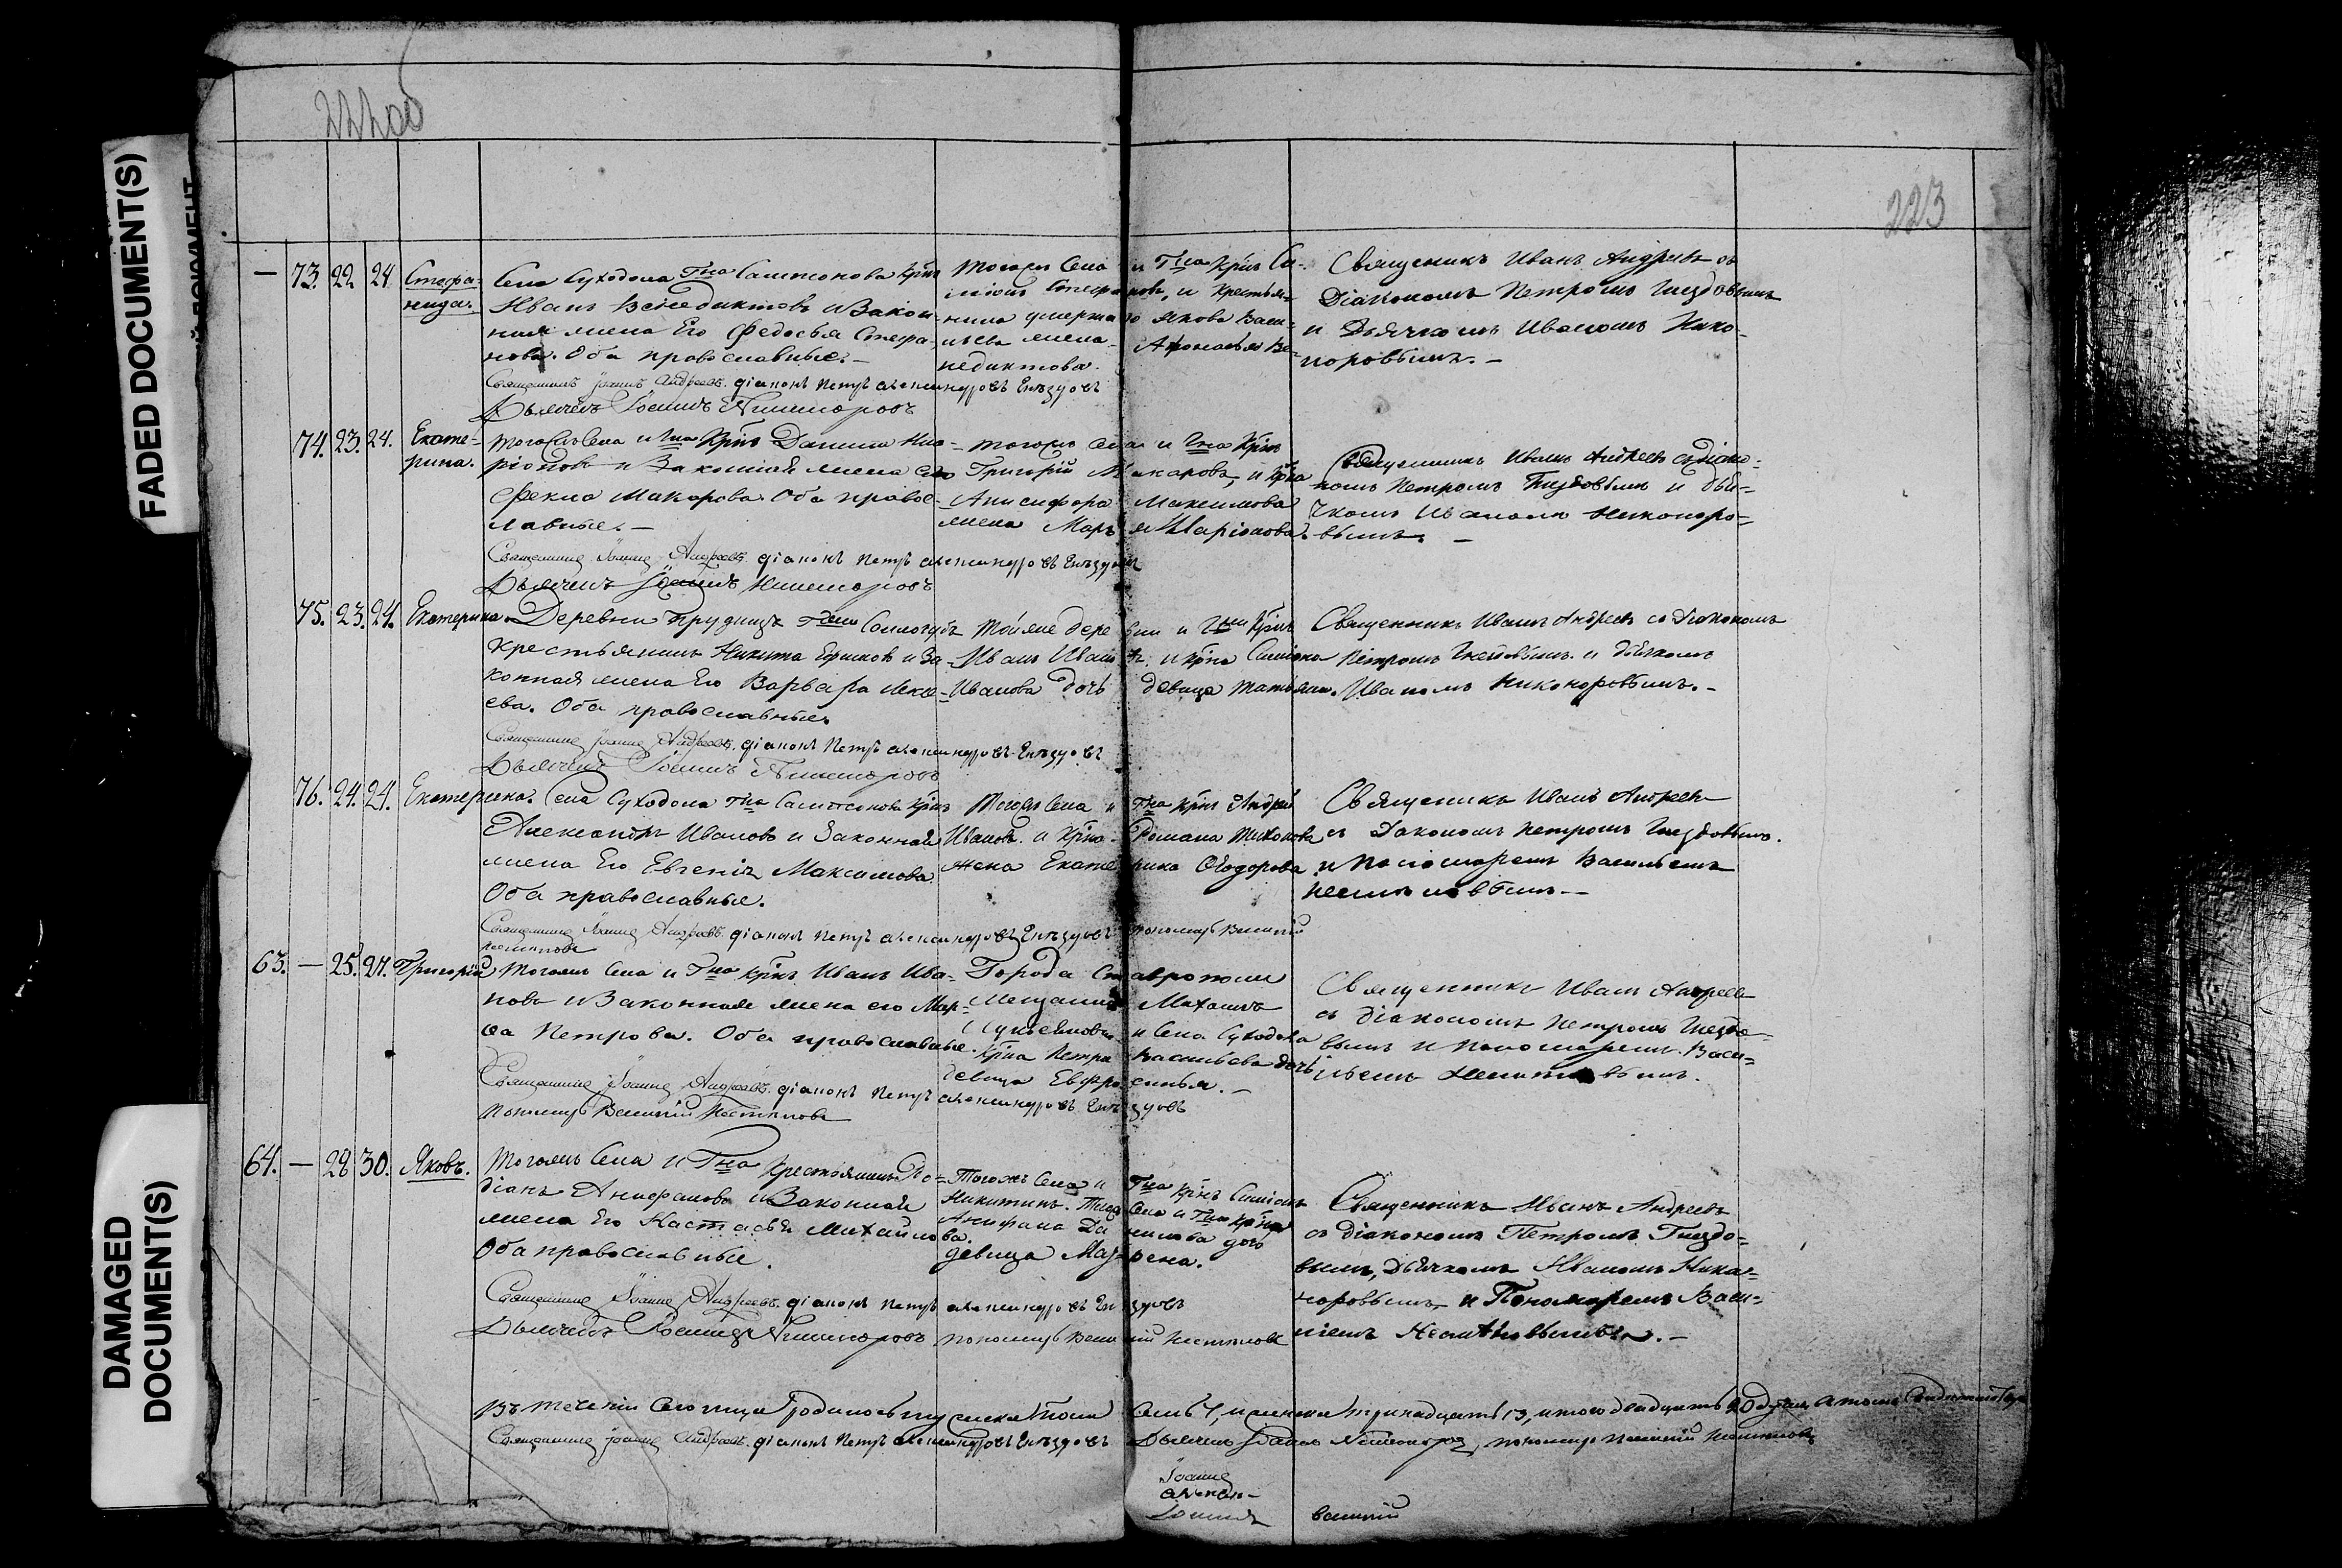 222об
223
FADED DOCUMENT(S)
DAMAGED
DOCUMENT(S)
— 73. 22 24. Стефа-
нида.
Села Суходола Гна Сампсонова крнъ
Иванъ Венедиктовъ и Закон-
ная жена Его Федосья Стефа-
нова. Оба православные. —
Тогожъ Села и Гна Крнъ Си-
міонъ Стефановъ, и Крестья-
нина умершаго Якова Васи-
льева жена Афонасья Ве-
недиктова.
Священикъ Иванъ Андреевъ съ
Діакономъ Петромъ Гнездовымъ
и Дьячкомъ Иваномъ Нико-
норовымъ. —
Священникъ Іоаннъ Андреевъ. діаконъ Петръ александровъ Гнѣздовъ
Дьячекъ Іоаннъ Никаноровъ
74. 23. 24. Екате-
рина.
Тогожъ Села и Гна Крнъ Данила Ила-
ріоновъ и Законная жена его
Фекла Макарова. Оба правос-
лавные. —
тогожъ села и Гна Крнъ
Григорій Макаровъ, и Крна
Анисифора Максимова
жена Марья Иларіонова.
Священникъ Иванъ Андреевъ съ діако-
номъ Петромъ Гнездовымъ и дья-
чкомъ Иваномъ Никоноро-
вымъ. —
Священникъ Іоаннъ Андреевъ. діаконъ Петръ александровъ Гнѣздовъ
Дьячекъ Іоаннъ Никаноровъ
75. 23. 24. Екатерина.
Деревни Прудищъ Гжи Сологубъ
Крестьянинъ Никита Ершковъ и За-
конная жена Его Варвара Алексе-
ева. Оба православные.
Тойже деревни и Гжи Крнъ
Иванъ Ивановъ. и крна Симіона
Иванова дочь девица Татьяна.
Священникъ Иванъ Андреевъ съ Діакономъ
Петромъ Гнездовымъ. и дьячкомъ
Иваномъ Никоноровымъ. —
Священникъ Іоаннъ Андреевъ. діаконъ Петръ александровъ Гнѣздовъ
Дьячекъ Іоаннъ Никаноровъ
76. 24. 24. Екатерина.
Села Суходола Гна Сампсонова Крнъ
Александръ Ивановъ и Законная
жена Его Евгенія Максимова.
Оба православные.
Тогожъ Села и Гна Крнъ Андрей
Ивановъ. и Крна Романа Тихонова
жена Екатерина Ѳеодорова
Священикъ Иванъ Андреевъ
съ Діакономъ Петромъ Гнездовымъ.
и Пономаремъ Васильемъ
Неаптовымъ —
Священникъ Іоаннъ Андреевъ. діаконъ Петръ александровъ Гнѣздовъ пономарь Василій
63. — 25. 27. Григорій
Тогожъ Села и Гна крнъ Иванъ Ива-
новъ и Законная жена его Мар-
ѳа Петрова. Оба православные.
Города Ставрополя
Мещанинъ Михаилъ
и Села Суходола
Крна Петра Васильева дочь
девица Евфросинья. —
Священникъ Иванъ Андреевъ
съ діакономъ Петромъ Гнездо-
вымъ и Пономаремъ Васи-
льемъ
Священникъ Іоаннъ Андреевъ. діаконъ Петръ александровъ Гнѣздовъ
Пономарь Василій
64. — 28 30. Яковъ.
Тогожъ Села и Гна Крестьянинъ Ро-
діанъ Анифановъ и Законная
жена Его Настасья Михайлова.
Оба православные.
Тогожъ Села и Гна крнъ Симіонъ
Никитинъ. Тогожъ Села и Гна крна
Анифана Данилова дочь
девица Маврена.
Священникъ Иванъ Андреевъ
съ діакономъ Петромъ Гнездо-
вымъ, Дьячкомъ Иваномъ Ника-
норовымъ и Пономаремъ Васи-
ліемъ
Священникъ Іоаннъ Андреевъ. діаконъ Петръ александровъ Гнѣздовъ
Дьячекъ Іоаннъ Никаноровъ пономарь Василій
Въ теченіи Сего мца родилось мужеска пола Семь 7, и женска тринадцать 13, итого двадцать 20
Священникъ Іоаннъ Андреевъ. діаконъ Петръ александровъ Гнѣздовъ Дьячекъ Іоаннъ Никаноровъ, пономарь Василій
Іоаннъ
алексан-
Іоаннъ Василій